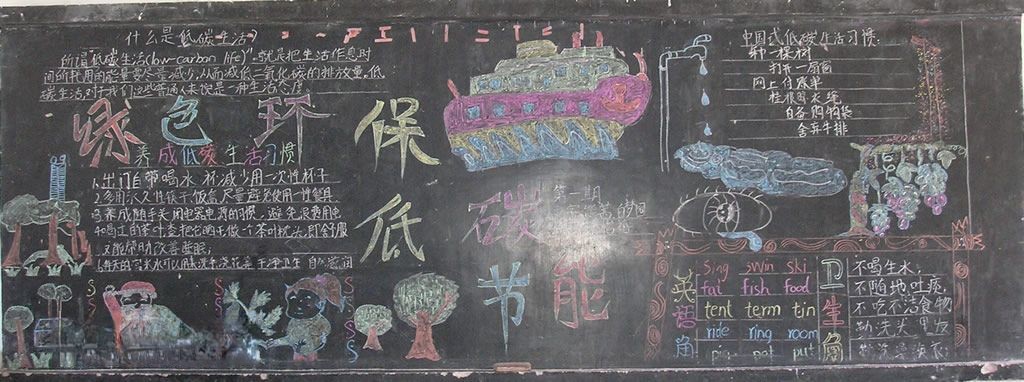 什么是低碳生活?
所谓低碳生活(low-carbon life)",就是把生活作息时
间所耗用的能量要尽量减少,从而减低二氧化碳的排放量,低
碳生活对于我们这些普通人来说是一种生活态度
绿色环保
低碳节能
养成低碳生活习惯
1.出门自带喝水杯减少用一次性杯子
2.多用永久性筷子、饭盒,尽量避免使用一性餐具
3.养成随手关用电器电源的习惯,避免浪费用电
茶叶渣把它晒干做一个茶叶枕头,即舒服
又能帮助改善睡眠;
第一期
中国式低碳生活习惯:
种一棵树
打开一扇窗
网上付账单
挂根晾衣绳
自备购物袋
舍弃牛排
英语角
sing swin ski
fat fish food
tent term tin
ride ring room
pig pet put
卫生角
不喝生水;
不随地吐痰,
不吃不洁食物
勤洗头 理发